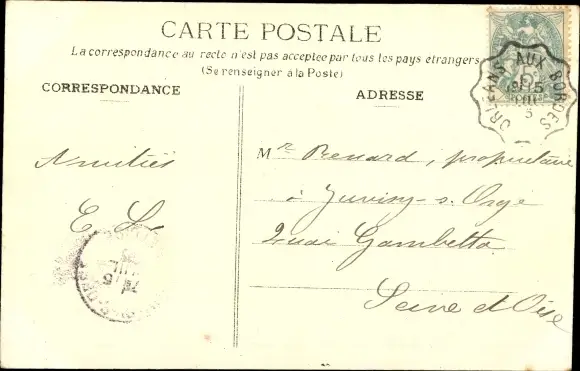 CARTE POSTALE
La correspondance au recto n'est pas acceptee par tous les pays étrangers
(Se renseigner à la Poste)
CORRESPONDANCE
ADRESSE
ORLEANS AUX BORDES
5
Amitiés
E. L.
Mr Renard, propriétaire
à Juvisy-s-Orge
Quai Gambetta
Seine et Oise